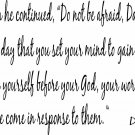 he continued, "Do not be afraid, Da
day that you set your mind to gain
yourself before your God, your wor
e come in response to them."